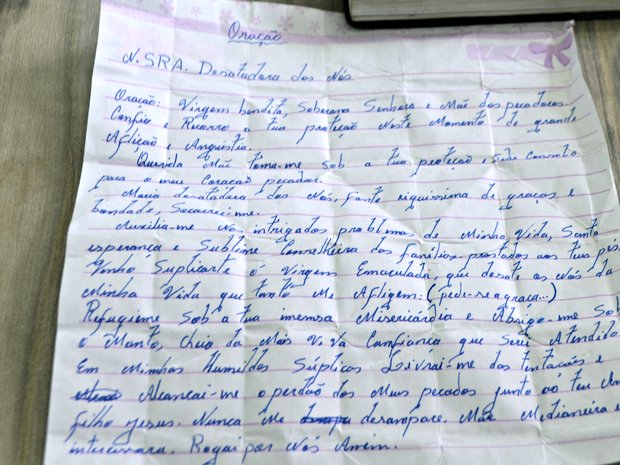 Oração
N. SRA. Desatadora dos Nós
Oração: Virgem bondita, Soberana Senhora e Mãe dos pecadores.
Confio e Recorro a tua proteção Neste Momento de grande
Aflição e Angustia.
Querida Mãe toma-me sob a tua proteção e sede consolo
para o meu Coração pecador.
Maria desatadora dos Nós, fonte riquissima de graças e
bondade, Socorrei-me.
Auxilia-me nos intrigados problemas de Minha Vida, Santa
esperança e Sublime Conselheira das familias prostados aos teus pés.
Venho Suplicarte ó Virgem Emaculada, que desate os Nós da
Minha Vida que tanto Me Afligem: (pede-se a graça...)
Refugieme Sob a tua imemsa Misericárdia e Abrigo-me Sob
o Manto, cheio da Mais Viva Comfiança que Serei Atendido
Em Minhas Humildes Súplicas Livrai-me das tentacões e
Alcancai-me o perdão dos Meus pecados junto ao teu Am
filho Jesus. Nunca Me desampare. Mãe Medianeira e
intercessora. Rogai por Nós Amim.